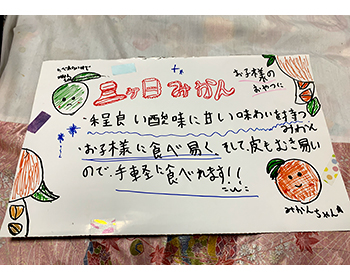 三ヶ日みかん
お子様の
おやつに
・程良い酸味に甘い味わいを持つ
みかん
・お子様に食べ易く、そして、皮もむき易い
ので、手軽に食べれます!!
みかんちゃん